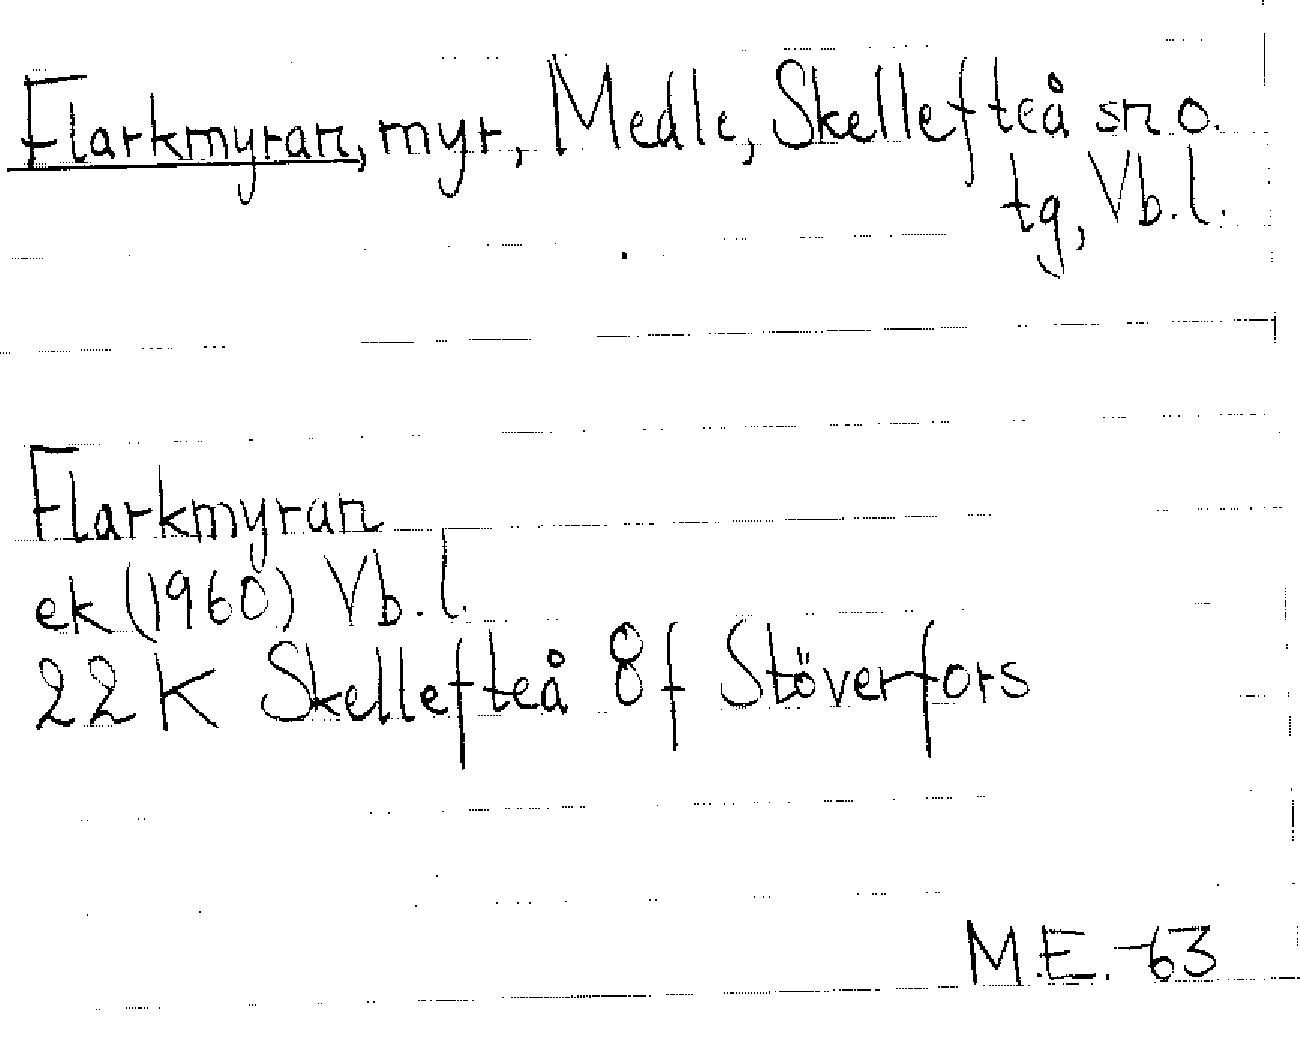 Flarkmyran, myr, Medle, Skellefteå sn o.
tg, Vb.l.
Flarkmyran
ek (1960) Vb.l.
22 K Skellefteå 8f Stöverfors
M.E. -63